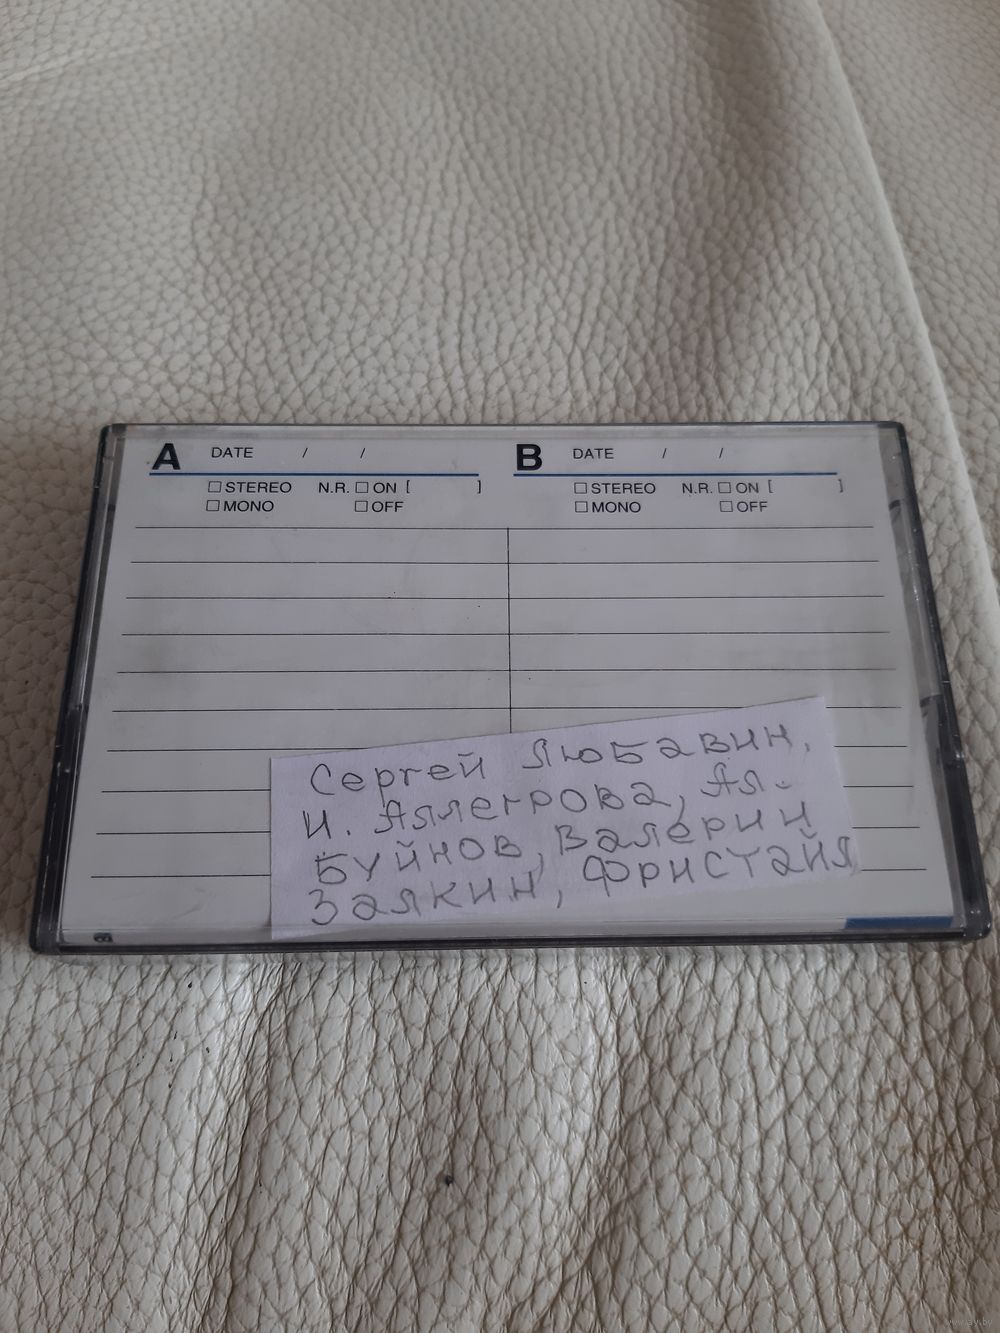 A DATE / / B DATE / /
☐ STEREO N.R. ☐ ON [ ] ☐ STEREO N.R. ☐ ON [ ]
☐ MONO ☐ OFF ☐ MONO ☐ OFF
Сергей Любавин,
И. Аллегрова, Ал.
Буйнов, Валерий
Залкин, Фристайл
www.ay.by